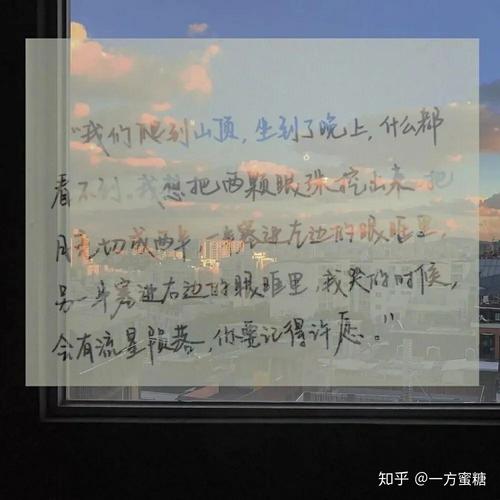 "我们爬到山顶，坐到了晚上，什么都
看不到。我想把两颗眼珠挖出来 把
月光切成两半，一半塞进左边的眼眶里，
另一半塞进右边的眼眶里，我哭的时候，
会有流星陨落，你要记得许愿。"
知乎 @一方蜜糖